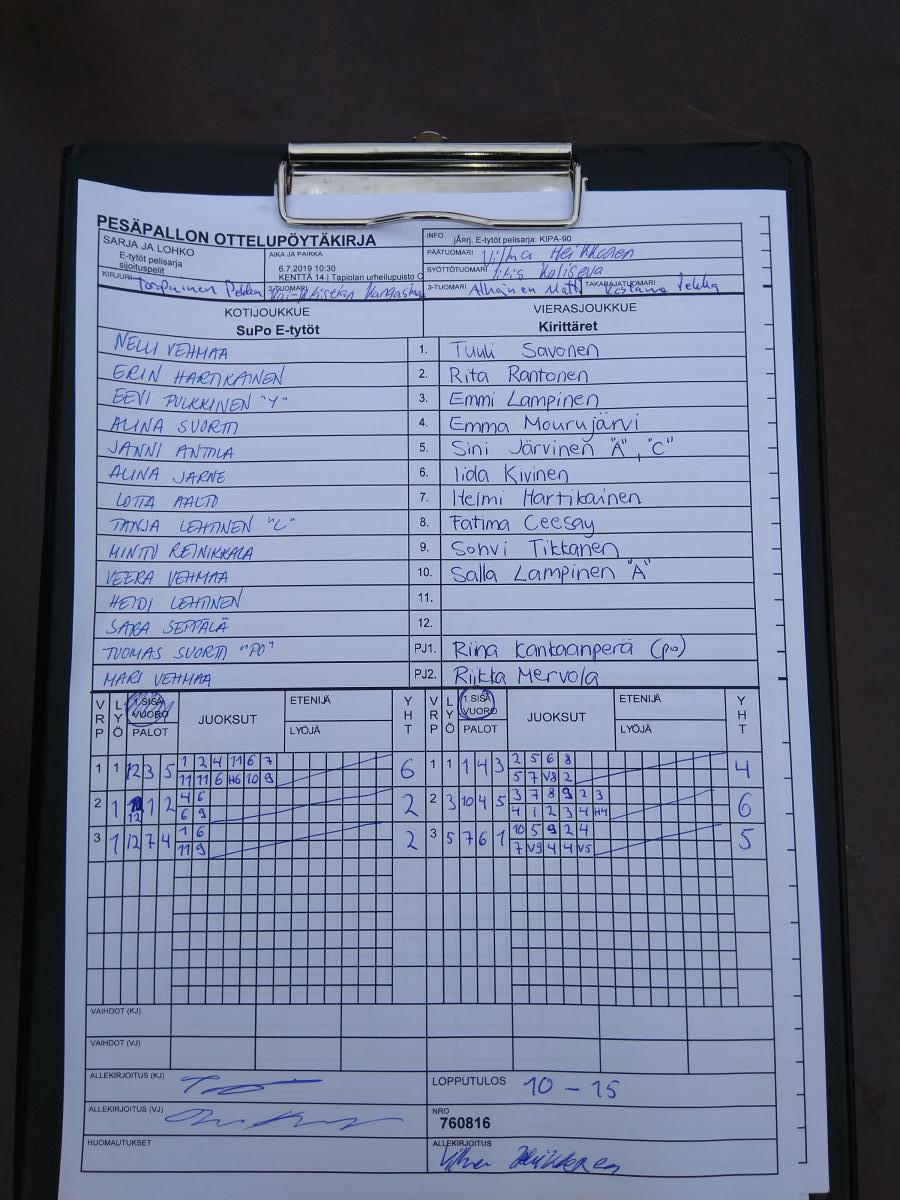 PESÄPALLON OTTELUPÖYTÄKIRJA
SARJA JA LOHKO
E-tytöt pelisarja
sijoituspelit
AIKA JA PAIKKA
6.7.2019 10:30
KENTTÄ 14 | Tapiolan urheilupuisto
INFO
E-tytöt pelisarja: KIPA-90
PÄÄTUOMARI Vilma Heikkonen
SYÖTTÖTUOMARI
KIRJURI
2-TUOMARI
3-TUOMARI
TAKARAJATUOMARI Pekka
KOTIJOUKKUE
SuPo E-tytöt
VIERASJOUKKUE
Kirittäret
NELLI VEHMAA 1. Tuuli Savonen
ERIN HARTIKAINEN 2. Rita Rantonen
EEVI PULKKINEN "Y" 3. Emmi Lampinen
ALINA SUORTTI 4. Emma Mourujärvi
JANNI ANTTILA 5. Sini Järvinen "A", "C"
ALINA JARNE 6. Iida Kivinen
LOTTA AALTO 7. Helmi Hartikainen
TANJA LEHTINEN "C" 8. Fatima Ceesay
MINTTU REINIKKALA 9. Sohvi Tikkanen
VEERA VEHMAA 10. Salla Lampinen "A"
HEIDI LEHTINEN 11.
SARA SEPPÄLÄ 12.
TUOMAS SUORTTI "PO" PJ1. Riina Kankaanperä (po)
MARI VEHMAA PJ2. Riikka Mervola
VRP LYÖ 1.SISÄVUORO PALOT JUOKSUT ETENIJÄ LYÖJÄ YHT VRP LYÖ 1.SISÄVUORO PALOT JUOKSUT ETENIJÄ LYÖJÄ YHT
1 1 12 3 5 1 2 4 11 6 7 6 1 1 1 4 3 2 5 6 8 4
11 11 6 H6 10 9 5 7 V8 2
2 1 12 1 2 4 6 2 2 3 10 4 5 3 7 8 9 2 3 6
6 9 4 1 2 3 4 H4
3 1 12 7 4 1 6 2 3 5 7 6 1 10 5 9 2 4 5
11 9 7 V9 4 4 V5
VAIHDOT (KJ)
VAIHDOT (VJ)
ALLEKIRJOITUS (KJ)
LOPPUTULOS 10 - 15
ALLEKIRJOITUS (VJ)
NRO
760816
HUOMAUTUKSET
ALLEKIRJOITUS
Vilma Heikkonen